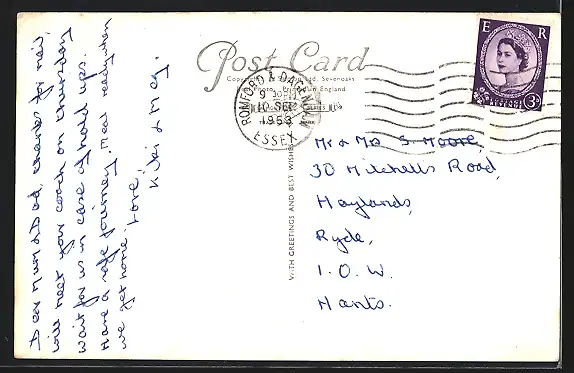 Dear Mum & Dad, thanks for mail,
will meet your coach on Thursday
wait for us in case of hold ups.
Have a safe journey. Meal ready when
we get home. Love,
& Meg.
Post Card
Sevenoaks
Printed in England
ROMFORD & DAGENHAM
9 30 PM
10 SEP
ESSEX
E R
3D
WITH GREETINGS AND BEST WISHES
Mr & Mrs S. Moore,
30 Mitchells Road,
Haylands,
Ryde,
I.O.W.
Hants.